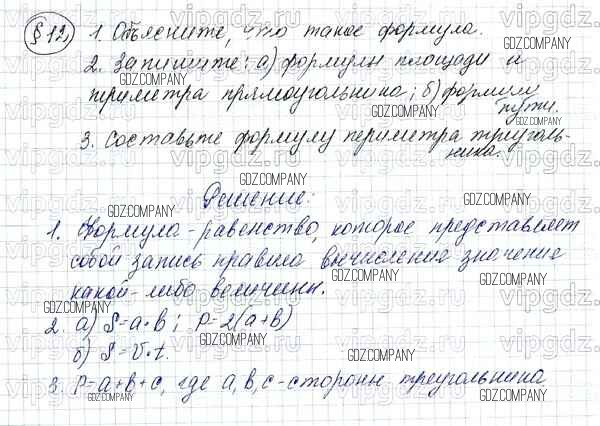 § 12.
1. Объясните, что такое формула.
2. Запишите: а) формулы площади и
периметра прямоугольника; б) формулу
пути.
3. Составьте формулу периметра треуголь-
ника.
Решение:
1. Формула - равенство, которое представляет
собой запись правила вычисления значения
какой-либо величины.
2. а) S=a·b; P=2(a+b)
б) S=v·t.
3. P=a+b+c, где a,b,c-стороны треугольника
GDZ.COMPANY
vipgdz.com